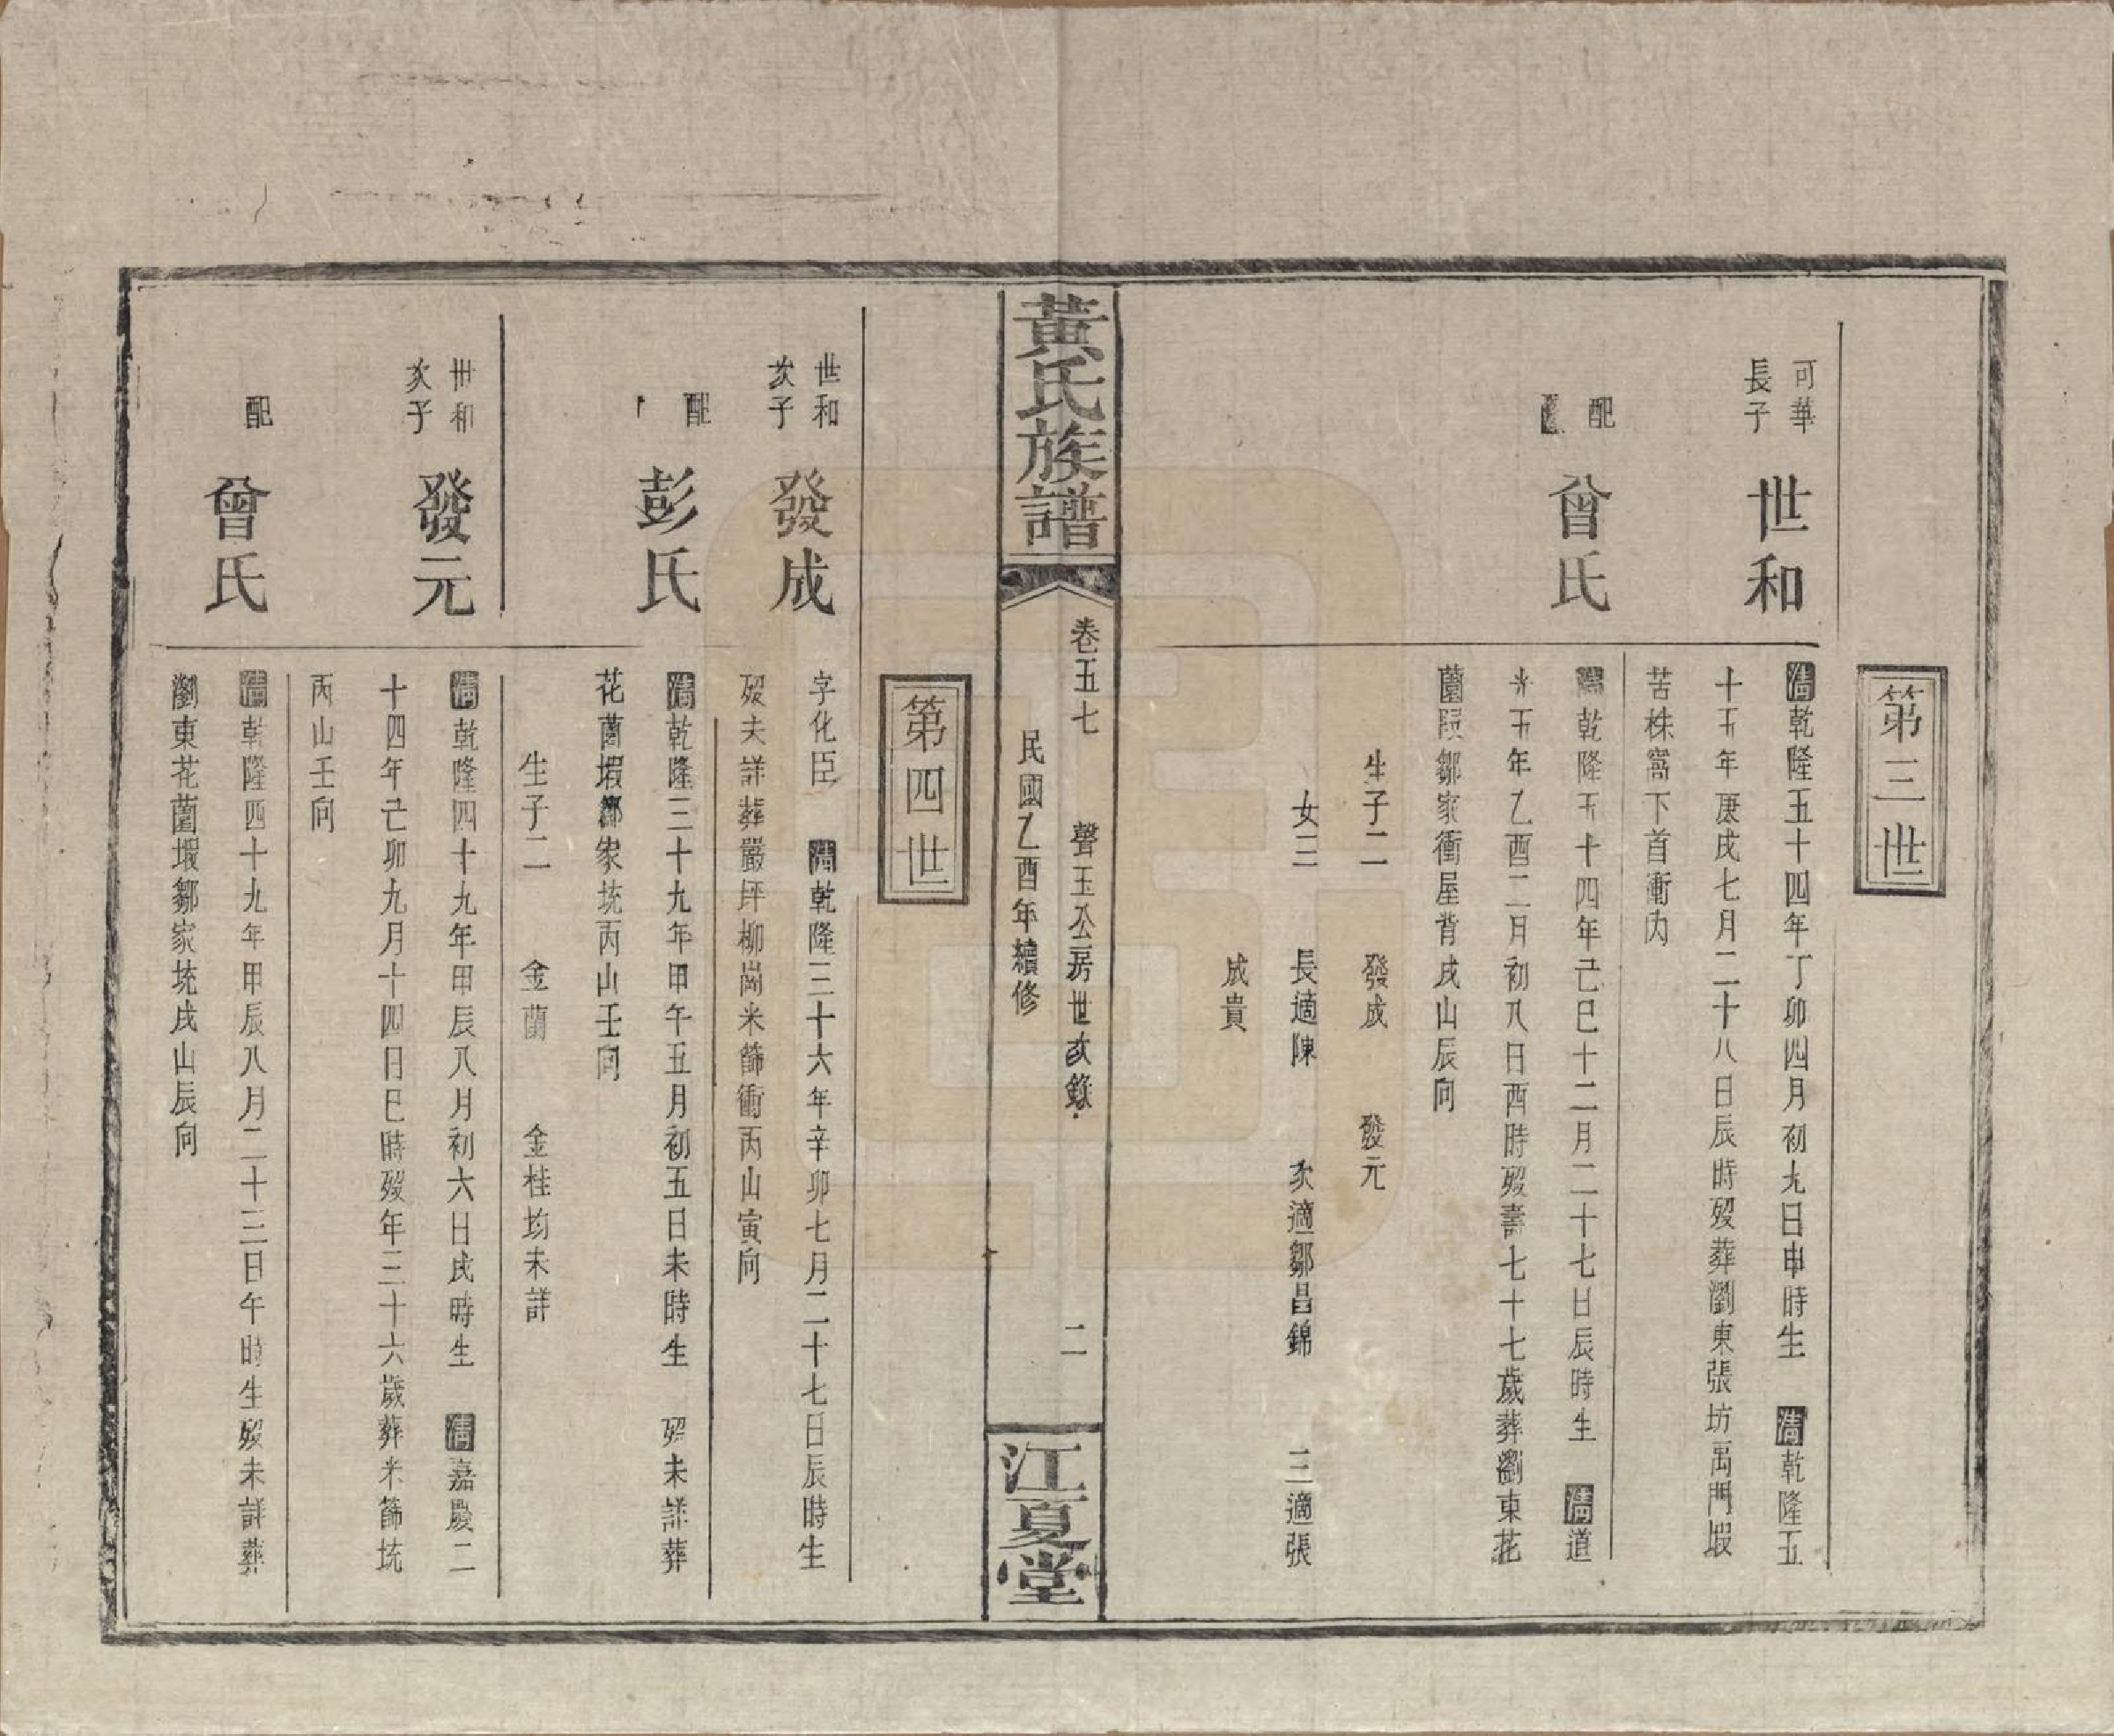 第三世
可華
長子
世和
清乾隆五十四年丁卯四月初九日申時生　清乾隆五
十五年庚戌七月二十八日辰時歿葬瀏東張坊禹門塅
苦株窩下首衝內
配
曾氏
清乾隆五十四年己巳十二月二十七日辰時生　清道
光五年乙酉二月初八日酉時歿壽七十七歲葬瀏東花
薗塅鄒家衝屋背戌山辰向
生子二　發成　發元
女三　長適陳　次適鄒昌錦　三適張
成貴
黃氏族譜
卷五七　聲玉公房世次錄
民國乙酉年續修
二
江夏堂
第四世
世和
次子
發成
字化臣　清乾隆三十六年辛卯七月二十七日辰時生
歿失詳葬嚴坪柳崗米篩衝丙山寅向
配
彭氏
清乾隆三十九年甲午五月初五日未時生　歿未詳葬
花薗塅鄒家坑丙山壬向
生子二　金蘭　金桂均未詳
世和
次子
發元
清乾隆四十九年甲辰八月初六日戌時生　清嘉慶二
十四年己卯九月十四日巳時歿年三十六歲葬米篩坑
丙山壬向
配
曾氏
清乾隆四十九年甲辰八月二十三日午時生歿未詳葬
瀏東花薗塅鄒家坑戌山辰向